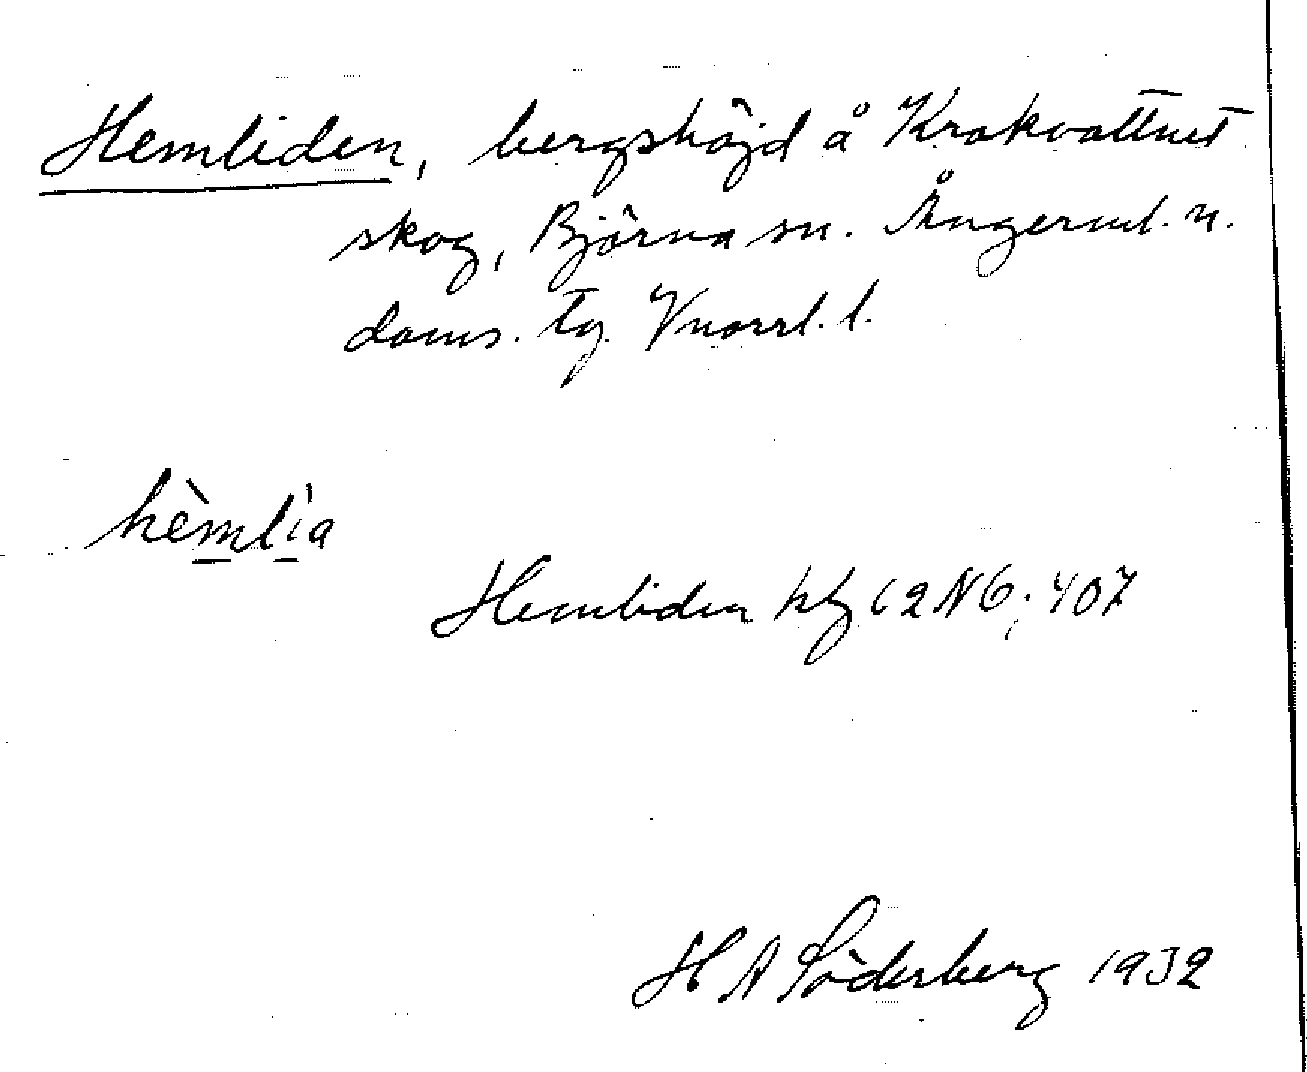 Hemliden, bergshöjd å Krokvattnet
skog, Björna sn. Ångerml. n.
doms. tg. Vnorrl. l.
hèmlìa
Hemliden 62 NG; 407
H A Söderberg 1932